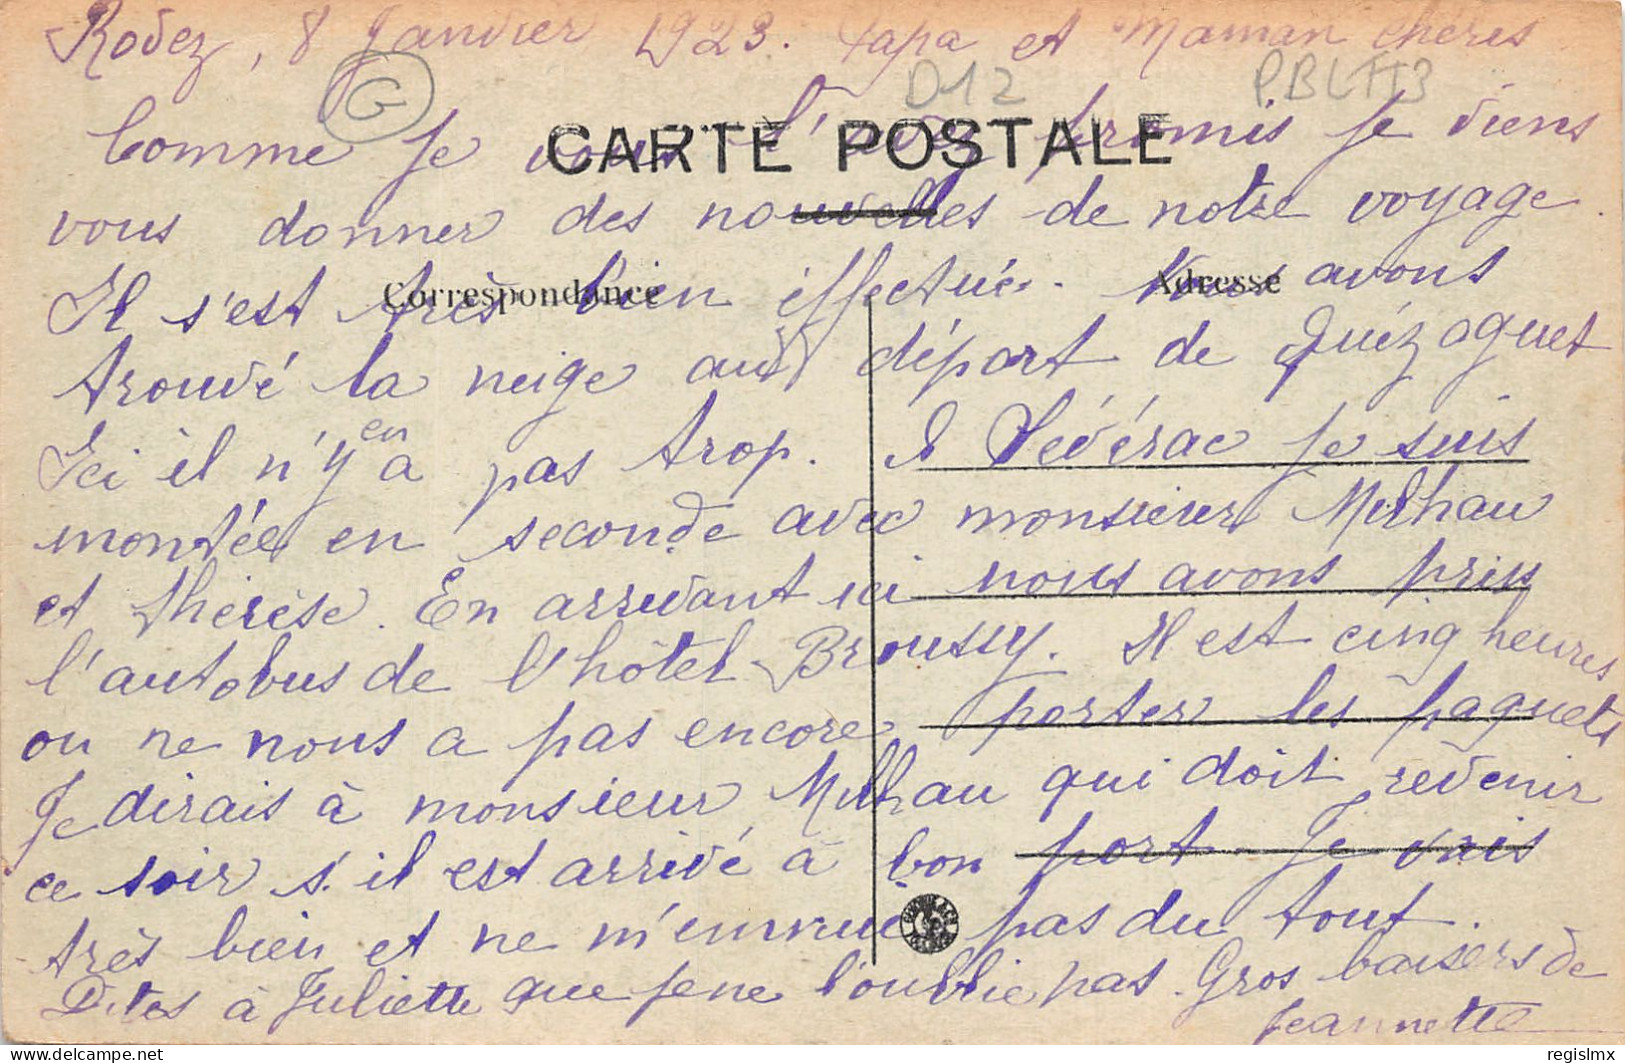 Rodez, 8 Janvier 1923. Papa et Maman chéris
G
D12
PBLTT3
Comme je vous l'avez promis je viens
CARTE POSTALE
vous donner des nouvelles de notre voyage.
Correspondance
Adresse
Il s'est très bien effectué. Nous avons
trouvé la neige au départ de Guézaguet
Ici il n'y en a pas trop. A Sévérac je suis
montée en seconde avec monsieur Milhau
et Thérèse. En arrivant ici nous avons pris
l'autobus de l'hôtel Broussy. Il est cinq heures
on ne nous a pas encore porter les paquets
Je dirais à monsieur Milhau qui doit revenir
ce soir s'il est arrivé à bon port. Je vais
très bien et ne m'ennuie pas du tout.
Dites à Juliette que je ne l'oublie pas. Gros baisers de
Jeannette
regislmx
delcampe.net